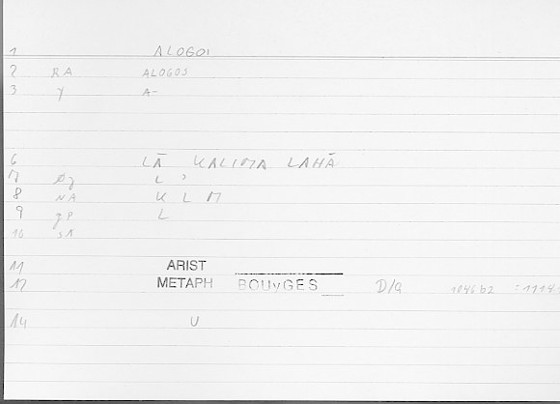 1 ALOGOI
2 RA ALOGOS
3 y A-
6 LĀ KALIMA LAHĀ
7 L ʾ
8 NA K L M
9 gP L
10 SA
11 ARIST
12 METAPH BOUyGES D/G 1046b2
14 U